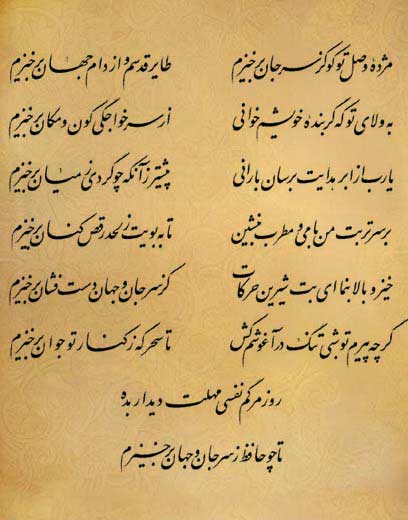 مژدهٔ وصل تو کو کز سر جان برخیزم طایر قدسم و از دام جهان برخیزم
به ولای تو که گر بندهٔ خویشم خوانی از سر خواجگی کون و مکان برخیزم
یارب از ابر هدایت برسان بارانی پیشتر زانکه چو گردی ز میان برخیزم
بر سر تربت من با می و مطرب بنشین تا به بویت ز لحد رقص کنان برخیزم
خیز و بالا بنما ای بت شیرین حرکات کز سر جان و جهان دست فشان برخیزم
گرچه پیرم تو شبی تنگ در آغوشم کش تا سحرگه ز کنار تو جوان برخیزم
روز مرگم نفسی مهلت دیدار بده
تا چو حافظ ز سر جان و جهان برخیزم